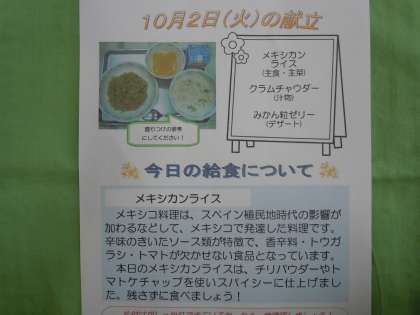 10月2日(火)の献立
メキシカン
ライス
(主食・主菜)
クラムチャウダー
(汁物)
みかん粒ゼリー
(デザート)
盛りつけの参考
にしてください!
今日の給食について
メキシカンライス
メキシコ料理は、スペイン植民地時代の影響が
加わるなどして、メキシコで発達した料理です。
辛味のきいたソース類が特徴で、香辛料・トウガ
ラシ・トマトが欠かせない食品となっています。
本日のメキシカンライスは、チリパウダーやト
マトケチャップを使いスパイシーに仕上げまし
た。残さずに食べましょう!